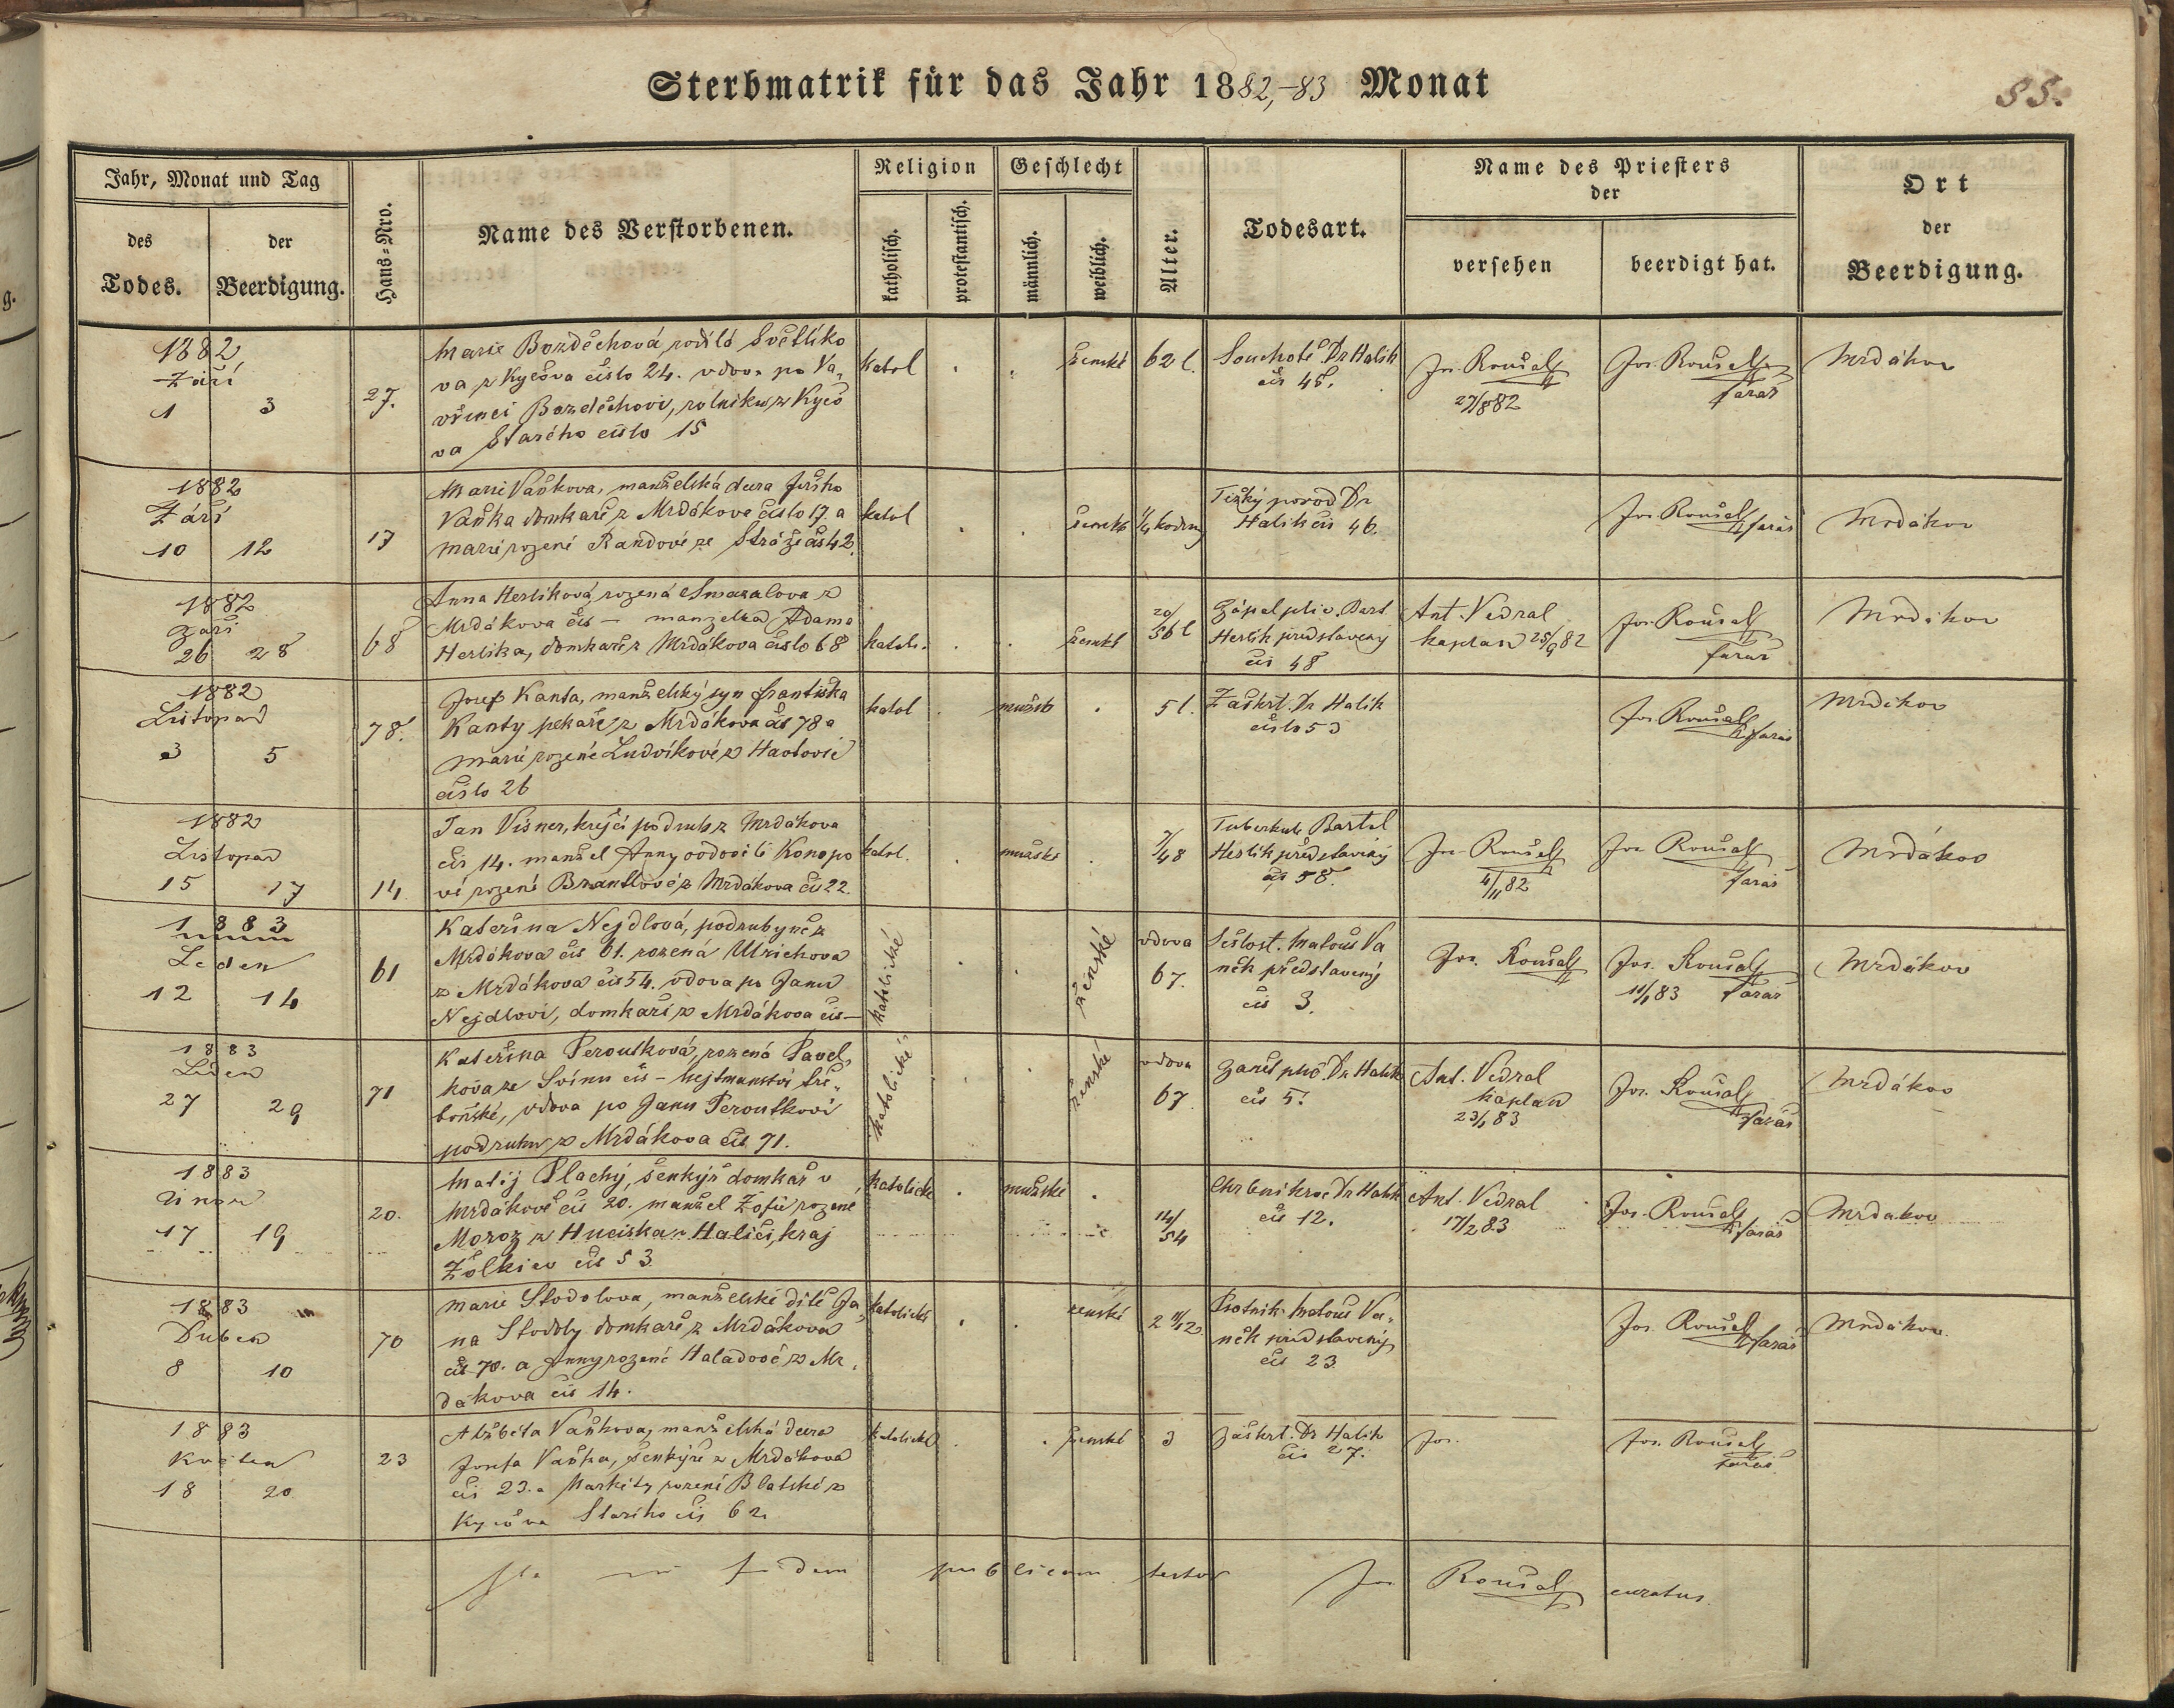 Sterbmatrik für das Jahr 1882,-83 Monat
85.
Jahr, Monat und Tag
des Todes.
der Beerdigung.
Haus-Nro.
Name des Verstorbenen.
Religion
katholisch.
protestantisch.
Geschlecht
männlich.
weiblich.
Alter.
Todesart.
Name des Priesters
der
versehen
beerdigt hat.
Ort
der
Beerdigung.
1882
Září
1 3
27.
Marie Bozděchová, rodilá Světlíko
va z Kyčova číslo 24. vdova po Va,
vřinci Bozděchovi, rolníku z Kyčo
va Starého číslo 15
katol
ženské
62 l.
Souchotě Dr Halik
čís 45.
Jos. Roušal
27/8 82
Jos. Roušal
farář
Mrdákov
1882
Září
10 12
17
Marie Vaňkova, manželská dcera
Vaňka domkáře z Mrdákova číslo 17 a
Marie rozené Randové ze Stráže čís 42.
katol
ženské
1/4 hodiny
Těžký porod Dr
Halik čís 46.
Jos. Roušal farář
Mrdákov
1882
Září
26 28
68
Anna Herlíková, rozená Smazalova z
Mrdákova čís – manželka Adama
Herlíka, domkáře z Mrdákova číslo 68
katol.
ženské
56 l
Zápal plic. Bart
Herlik představený
čís 48
Ant. Vedral
kaplan 25/9 82
Jos. Roušal
farář
Mrdákov
1882
Listopad
3 5
78.
Josef Kanta, manželský syn Františka
Kanty pekaře z Mrdákova čís 78 a
Marie rozené Ludvíkové z
číslo 26
katol
mužsk
5 l.
Záškrt. Dr Halik
číslo 53
Jos. Roušal farář
Mrdákov
1882
Listopad
15 17
14
Jan Višner, krejčí podruh z Mrdákova
čís 14. manžel Anny ovdovělé Konopo
vé rozené Brantlové z Mrdákova čís 22.
katol.
mužské
48
Tuberkule Bartol
Herlik představený
čís 58.
Jos. Roušal
4/11 82
Jos. Roušal
farář
Mrdákov
1883
Leden
12 14
61
Kateřina Nejdlová, podruhyně z
Mrdákova čís 61. rozená Ulrichova
z Mrdákova čís 54. vdova po Janu
Nejdlovi, domkáři z Mrdákova čís –
katolické
ženské
vdova
67.
Sešlost. Matouš Va
něk představený
čís 3.
Jos. Roušal
Jos. Roušal
11/1 83 farář
Mrdákov
1883
Leden
27 29
71
Kateřina Peroutková, rozená Pavel,
kova ze Svinu čís – hejtmanství Tře,
boňské, vdova po Janu Peroutkovi
podruhu z Mrdákova čís 71.
katolické
ženské
vdova
67
Zánět plic. Dr Halik
čís 5.
Ant. Vedral
kaplan
23/1 83
Jos. Roušal
farář
Mrdákov
1883
Únor
17 19
20.
Matěj Plachý, šenkýř domkář v
Mrdákově čís 20. manžel Žofie rozené
Moroz z Huciska v Haliči, kraj
Žolkiev čís 53
katolické
mužské
54
Chrlení krve Dr Halik
čís 12.
Ant. Vedral
17/2 83
Jos. Roušal
farář
Mrdakov
1883
Duben
8 10
70
Marie Stodolova, manželské dítě Ja,
na Stodoly domkáře z Mrdákova
čís 70. a Anny rozené Haladové z Mr,
dákova čís 14.
katolické
ženské
Psotník. Matouš Va,
něk představený
čís 23
Jos. Roušal
farář
Mrdákov.
1883
Květen
18 20
23
Alžběta Vaňkova, manželská dcera
Josefa Vaňka, šenkýře z Mrdákova
čís 23. a Markéty rozené Blatské z
Kyčova Starého čís 62.
katolické
ženské
3
Záškrt. Dr Halik
čís 27.
Jos.
Jos. Roušal
farář
Ita in fidem publicam testor Jos Roušal curatus.